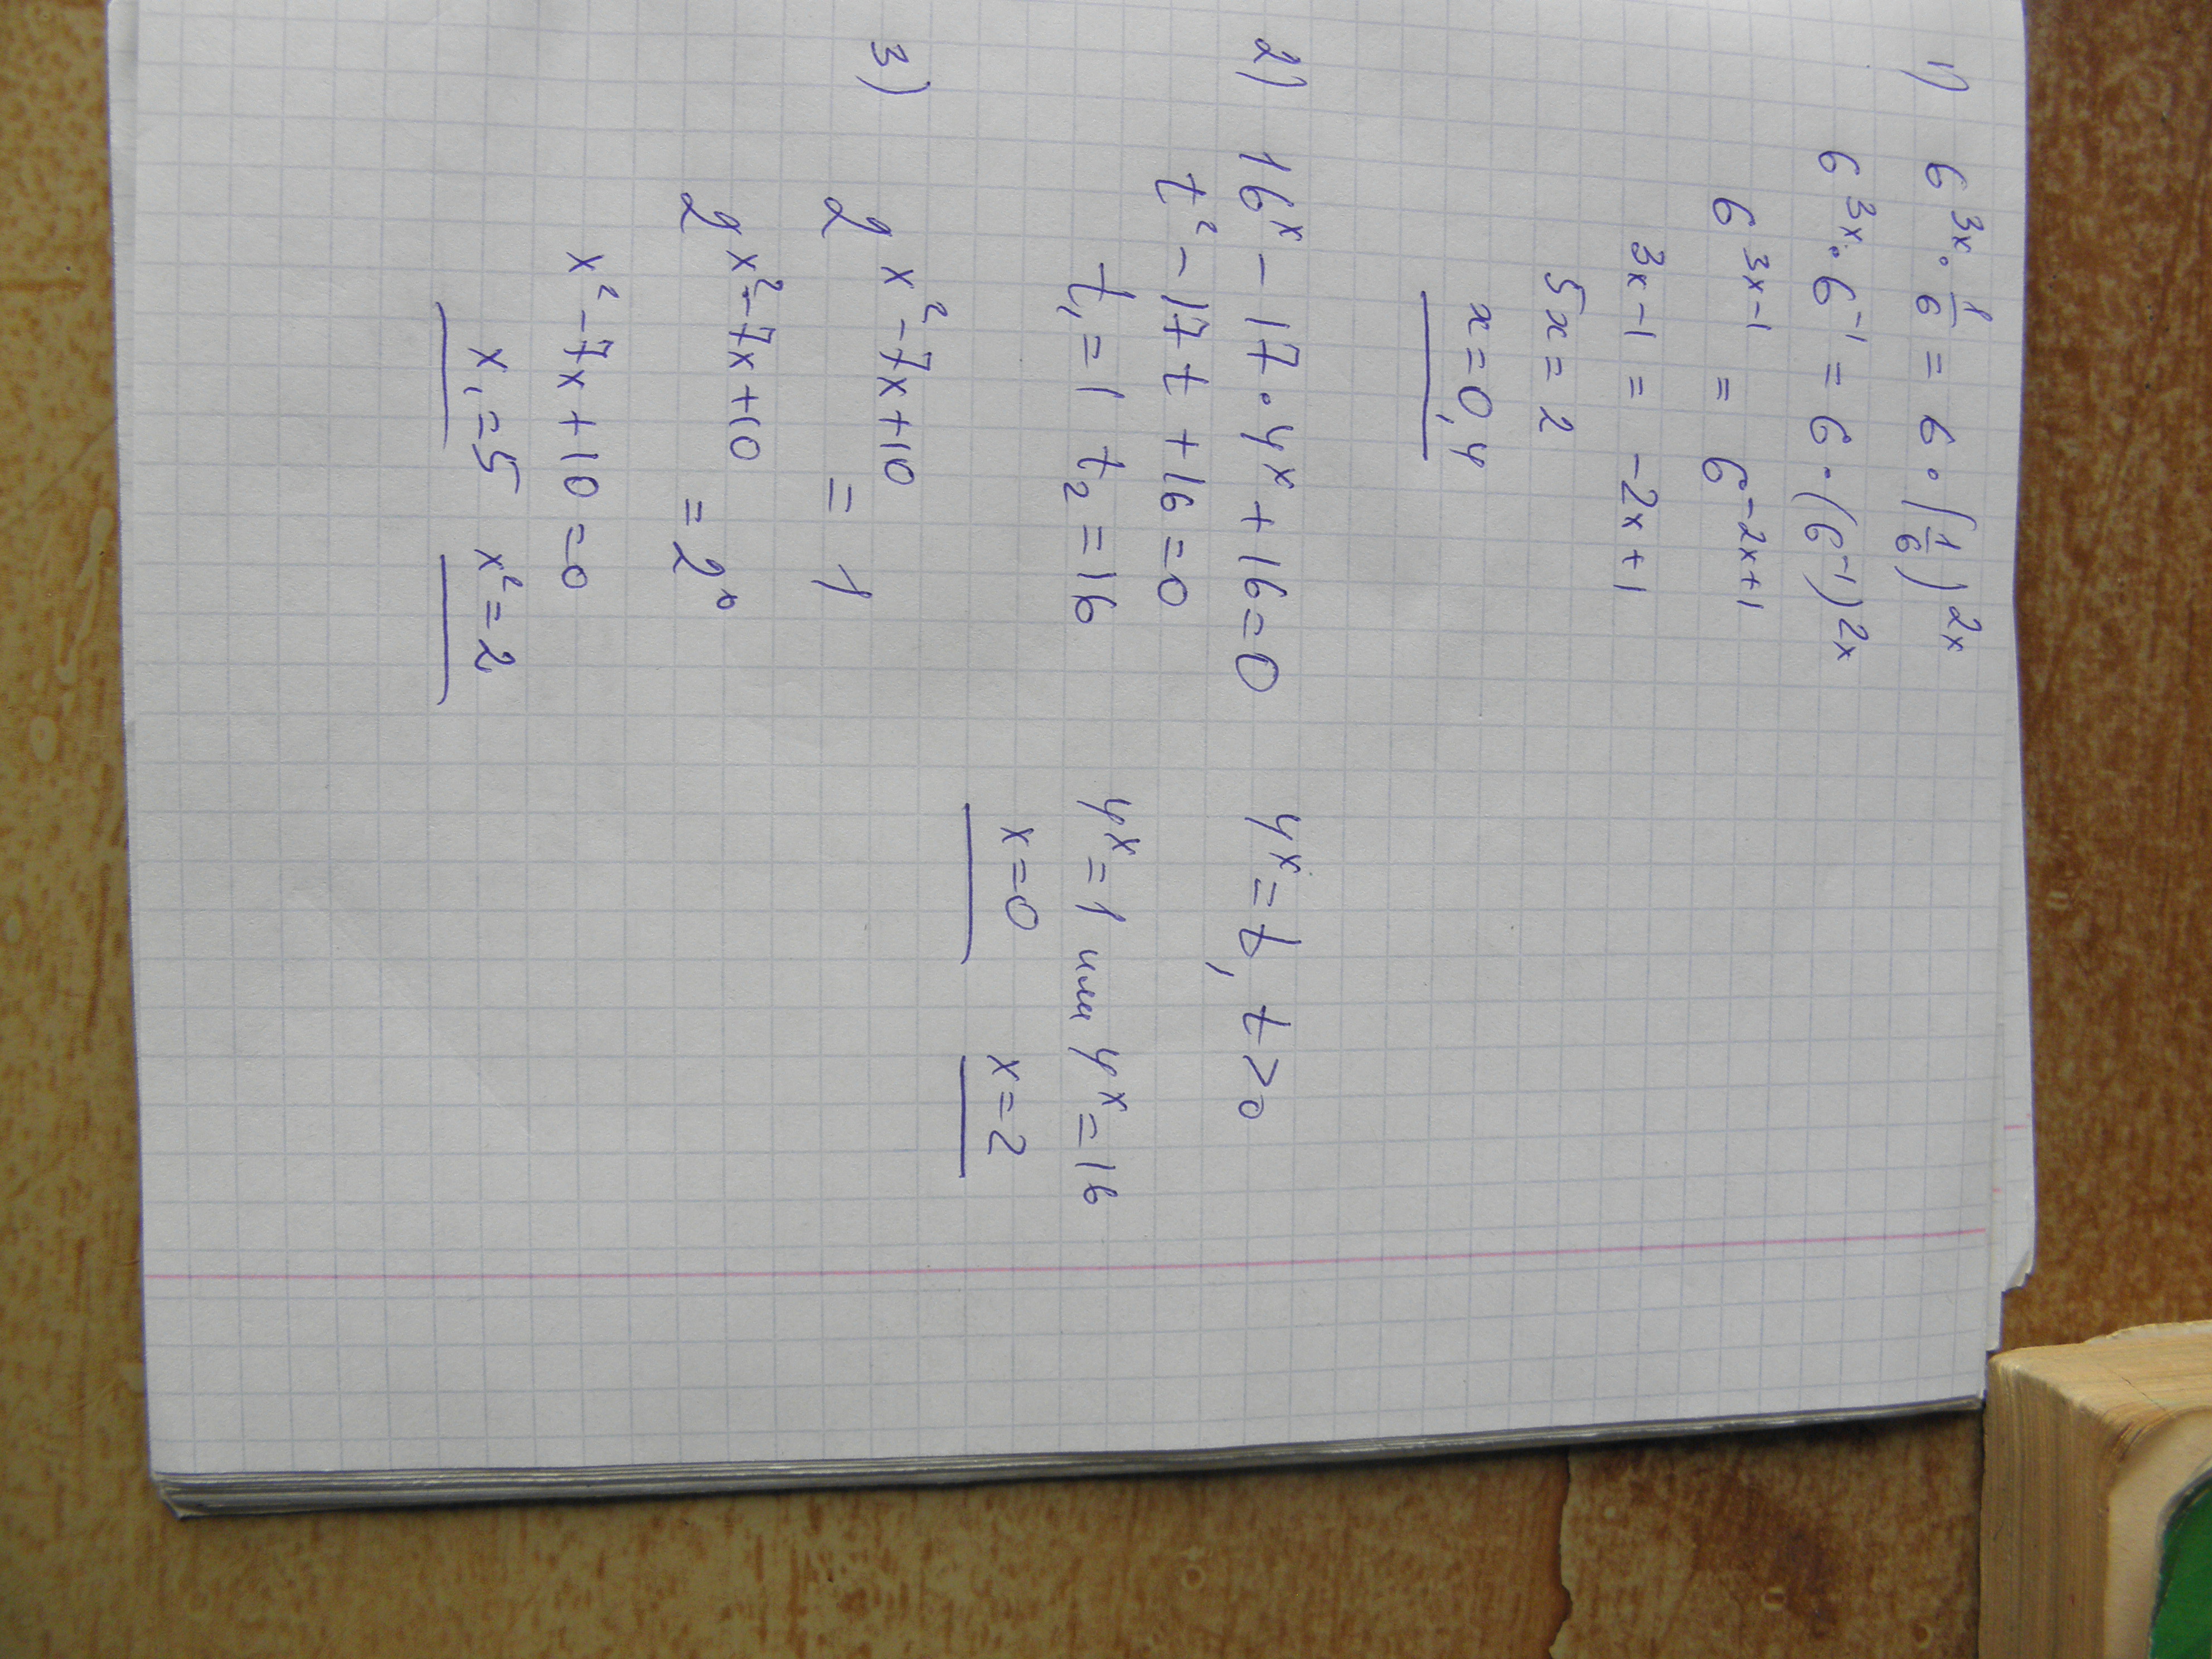 1) 6^{3x} · 1/6 = 6 · (1/6)^{2x}
6^{3x} · 6^{-1} = 6 · (6^{-1})^{2x}
6^{3x-1} = 6^{-2x+1}
3x - 1 = -2x + 1
5x = 2
x = 0,4
2) 16^x - 17 · 4^x + 16 = 0 4^x = t, t > 0
t² - 17t + 16 = 0
t₁ = 1 t₂ = 16 4^x = 1 или 4^x = 16
x = 0 x = 2
3) 2^{x²-7x+10} = 1
2^{x²-7x+10} = 2^0
x² - 7x + 10 = 0
x₁ = 5 x² = 2